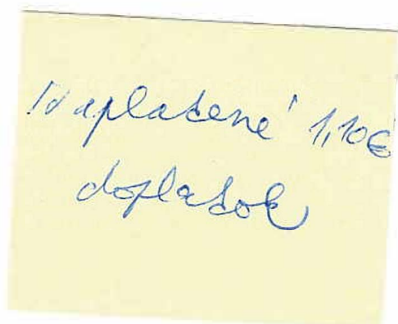 Naplatené 1,10€
doplatok